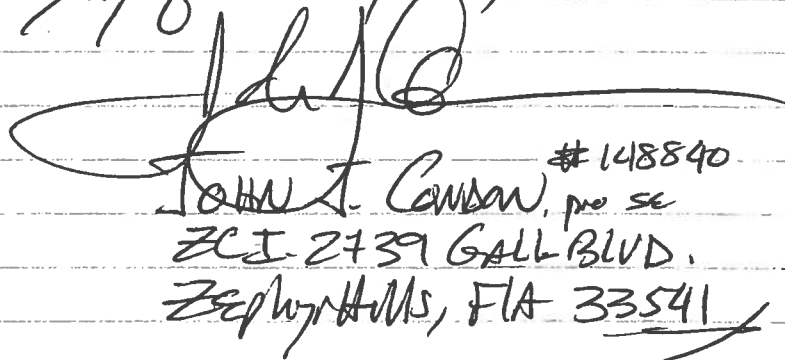 #148840
JOHN J. , pro se
ZCI-2739 GALL BLVD.
ZEphyrHills, FlA 33541